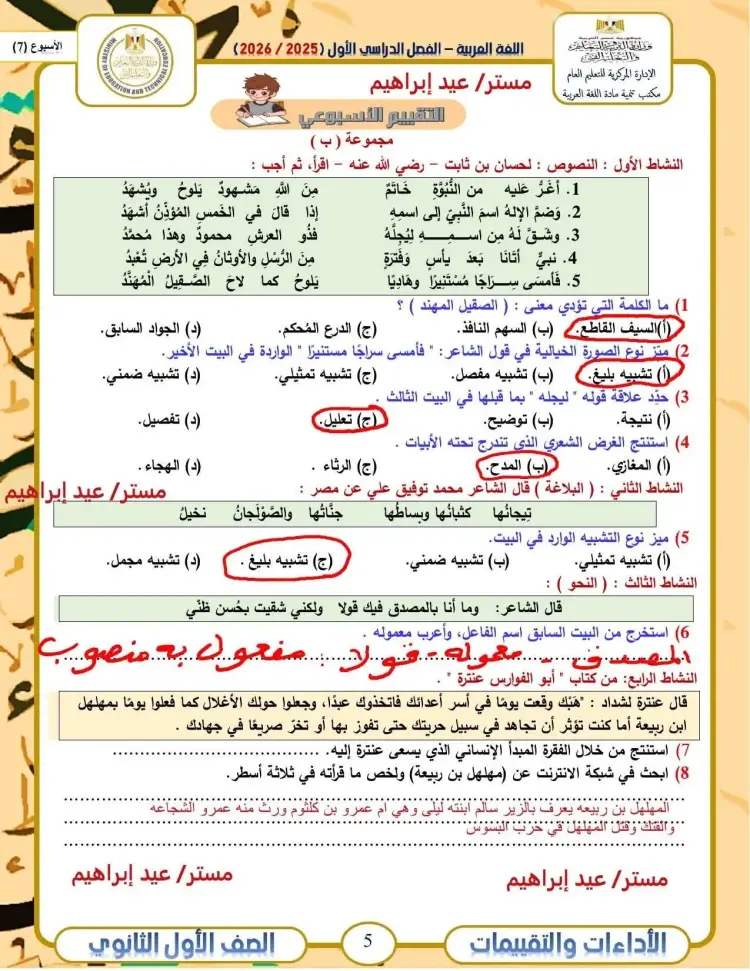 الأسبوع (7)
اللغة العربية – الفصل الدراسي الأول (2025 / 2026)
الإدارة المركزية للتعليم العام
مكتب تنمية مادة اللغة العربية
مستر/ عيد إبراهيم
التقييم الأسبوعي
مجموعة ( ب )
النشاط الأول : النصوص : لحسان بن ثابت – رضي الله عنه – اقرأ، ثم أجب :
1. أَغَرُّ عَليه من النُّبُوَّةِ خَاتَمٌ مِنَ اللهِ مَشهودٌ يَلوحُ ويُشهَدُ
2. وَضمَّ الإلهُ اسمَ النَّبِيّ إلى اسمِهِ إذا قالَ في الخَمسِ المُؤذِّنُ أشهَدُ
3. وشَقَّ لَهُ مِن اسمِهِ لِيُجلَّهُ فَذُو العرشِ محمودٌ وهذا مُحمَّدُ
4. نبيٌّ أتَانَا بَعدَ يأسٍ وَفَترَةٍ مِنَ الرُّسْلِ والأوثانُ فِي الأرضِ تُعْبدُ
5. فَأمسَى سِرَاجًا مُسْتَنيرًا وهَادِيًا يَلوحُ كما لاحَ الصَّقِيلُ الْمُهَنَّدُ
1) ما الكلمة التي تؤدي معنى : ( الصقيل المهند ) ؟
(أ)السيف القاطع. (ب) السهم النافذ. (ج) الدرع المُحكم. (د) الجواد السابق.
2) ميّز نوع الصورة الخيالية في قول الشاعر: " فأمسى سراجًا مستنيرًا " الواردة في البيت الأخير.
(أ) تشبيه بليغ. (ب) تشبيه مفصل. (ج) تشبيه تمثيلي. (د) تشبيه ضمني.
3) حدِّد علاقة قوله " ليجله " بما قبلها في البيت الثالث .
(أ) نتيجة. (ب) توضيح. (ج) تعليل. (د) تفصيل.
4) استنتج الغرض الشعري الذي تندرج تحته الأبيات .
(أ) المغازي. (ب) المدح. (ج) الرثاء . (د) الهجاء .
النشاط الثاني : ( البلاغة ) قال الشاعر محمد توفيق علي عن مصر :
مستر/ عيد إبراهيم
تِيجانُها كثبانُها وبساطُها جنَّاتُها والصَّوْلَجانُ نخيلُ
5) ميز نوع التشبيه الوارد في البيت.
(أ) تشبيه تمثيلي. (ب) تشبيه ضمني. (ج) تشبيه بليغ . (د) تشبيه مجمل.
النشاط الثالث : ( النحو ) :
قال الشاعر: وما أنا بالمصدق فيك قولا ولكني شقيت بحُسن ظنّي
6) استخرج من البيت السابق اسم الفاعل، وأعرب معموله .
المصدق - معموله - قولا : مفعول به منصوب
النشاط الرابع: من كتاب " أبو الفوارس عنترة " .
قال عنترة لشداد : "هَبْك وقعت يومًا في أسر أعدائك فاتخذوك عبدًا، وجعلوا حولك الأغلال كما فعلوا يومًا بمهلهل
ابن ربيعة أما كنت تؤثر أن تجاهد في سبيل حريتك حتى تفوز بها أو تخرّ صريعًا في جهادك .
7) استنتج من خلال الفقرة المبدأ الإنساني الذي يسعى عنترة إليه. ..............................
8) ابحث في شبكة الانترنت عن (مهلهل بن ربيعة) ولخص ما قرأته في ثلاثة أسطر.
المهلهل بن ربيعه يعرف بالزير سالم ابنته ليلى وهي ام عمرو بن كلثوم ورث منه عمرو الشجاعه
والفتك وقتل المهلهل في حرب البسوس
مستر/ عيد إبراهيم
مستر/ عيد إبراهيم
الأداءات والتقييمات
5
الصف الأول الثانوي